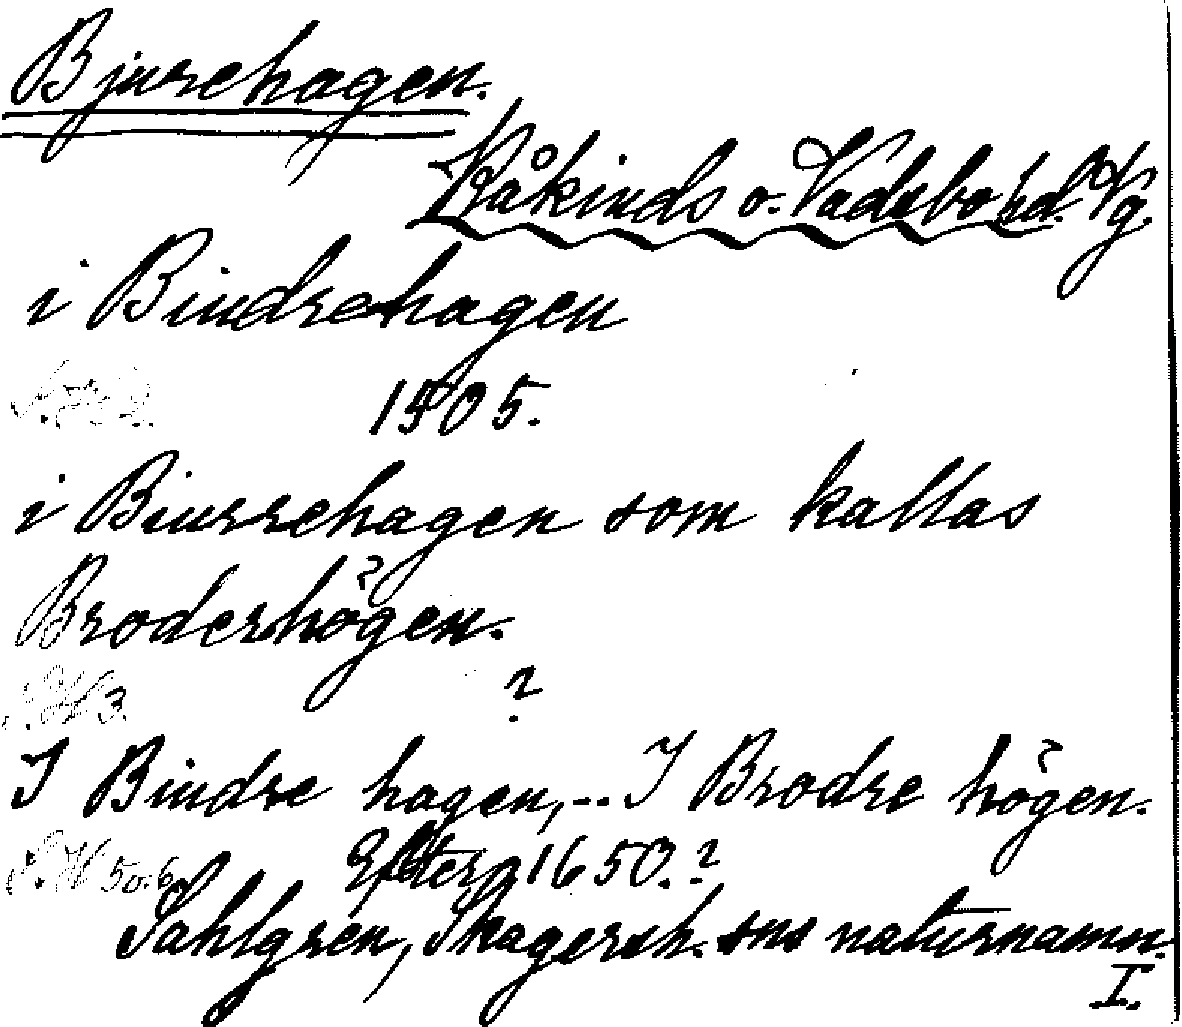 Bjurehagen.
Kåkinds o. Vadsbo hd. Vg.
i Bindrehagen
1505.
i Biurrehagen som kallas
Broderhögen.
S. H 3. ?
I Bindre hagen,-- I Brodre högen.
S. H 5 o. 6. Efter 1650.?
Sahlgren, Skagersh. sns naturnamn.
I.